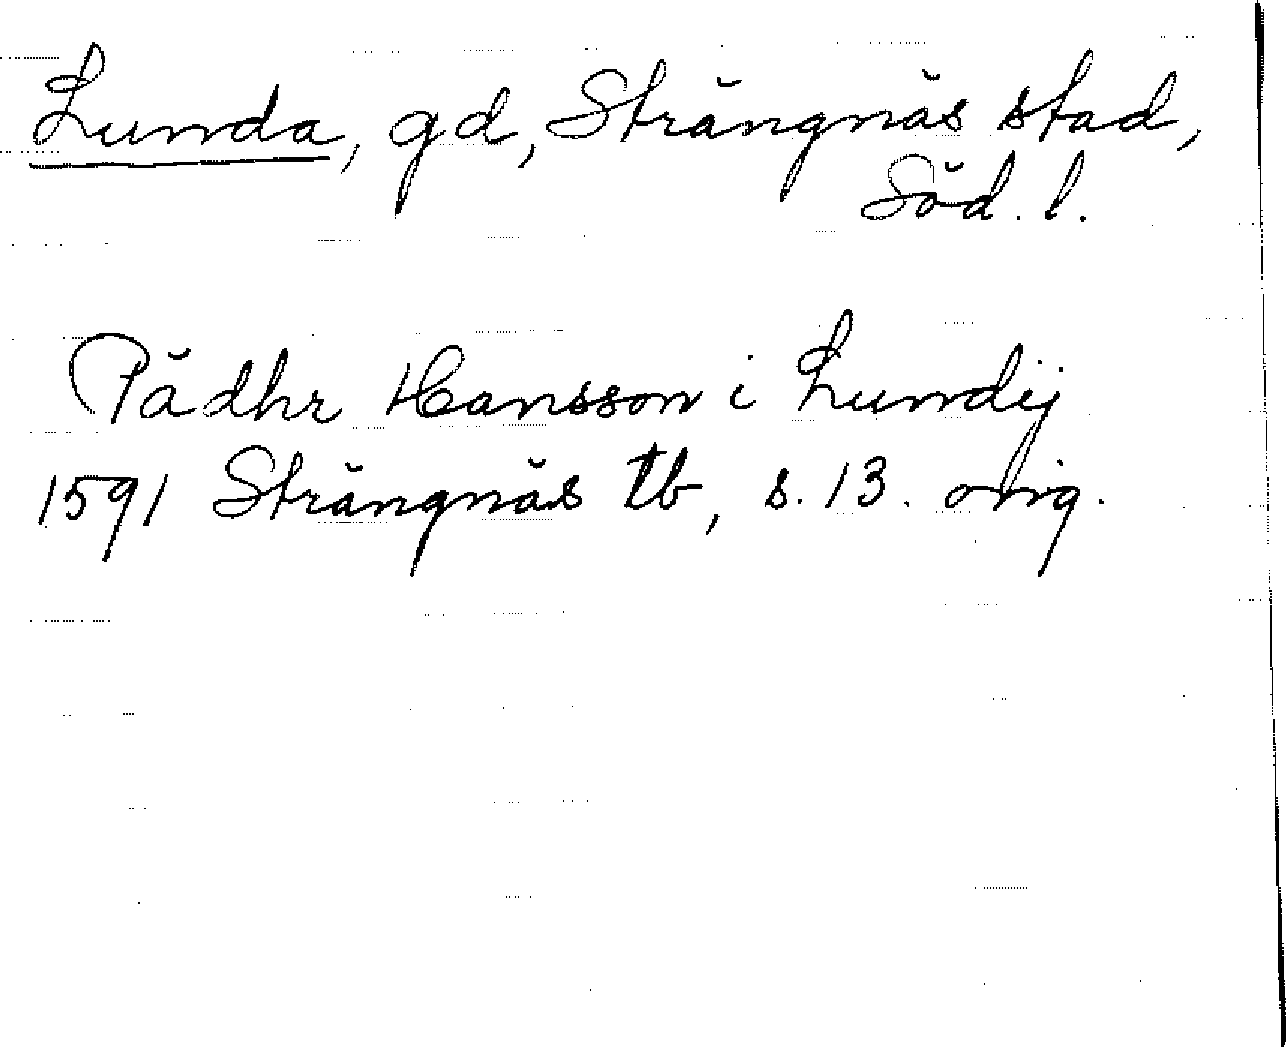 Lunda, gd, Strängnäs stad,
Söd. l.
Pädhr Hansson i Lundij
1591 Strängnäs tb, s. 13. orig.